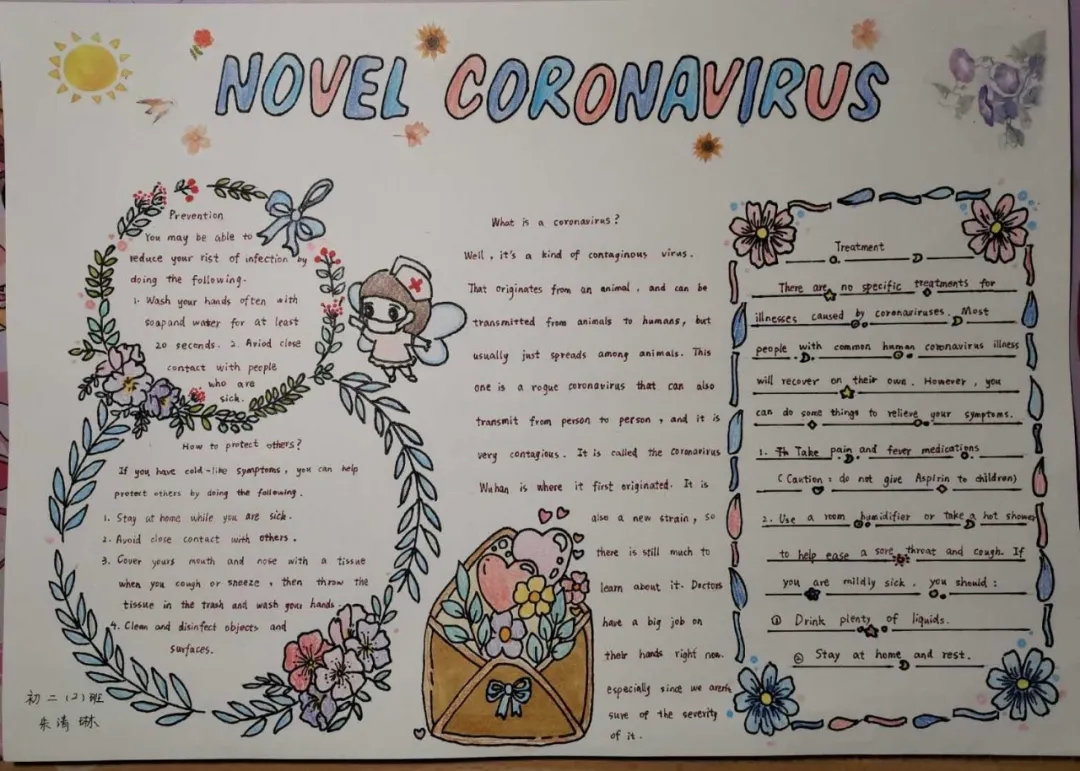 NOVEL CORONAVIRUS
Prevention
You may be able to
reduce your rist of infection by
doing the following.
1. Wash your hands often with
soapand water for at least
20 seconds. 2. Aviod close
contact with people
who are
sick.
How to protect others?
If you have cold-like symptoms, you can help
protect others by doing the following.
1. Stay at home while you are sick.
2. Avoid close contact with others.
3. Cover yours mouth and nose with a tissue
when you cough or sneeze, then throw the
tissue in the trash and wash your hands.
4. Clean and disinfect objects and
surfaces.
初二(2)班
朱清琳
What is a coronavirus?
Well, it's a kind of contaginous virus.
That originates from an animal, and can be
transmitted from animals to humans, but
usually just spreads among animals. This
one is a rogue coronavirus that can also
transmit from person to person, and it is
very contagious. It is called the coronavirus
Wuhan is where it first originated. It is
also a new strain, so
there is still much to
learn about it. Doctors
have a big job on
their hands right now.
especially since we arent
sure of the severity
of it.
Treatment
There are no specific treatments for
illnesses caused by coronaviruses. Most
people with common human coronavirus illness
will recover on their own. However, you
can do some things to relieve your symptoms.
1. Take pain and fever medications
(Caution: do not give Aspirin to children)
2. Use a room humidifier or take a hot shower
to help ease a sore throat and cough. If
you are mildly sick, you should:
① Drink plenty of liquids.
② Stay at home and rest.